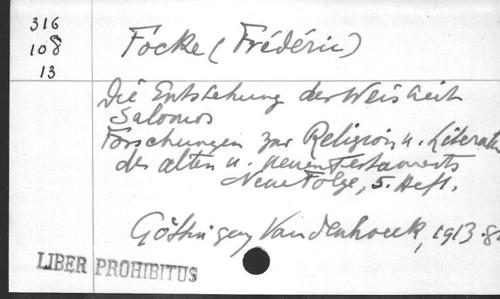 316
108
13
Focke (Frédéric)
Die Entstehung der Weisheit
Salomos
Forschungen zur Religion u. Literatur
des alten u. neuen Testaments
Neue Folge, 5. Heft.
Göttingen Vandenhoeck, 1913. 8º
LIBER PROHIBITUS